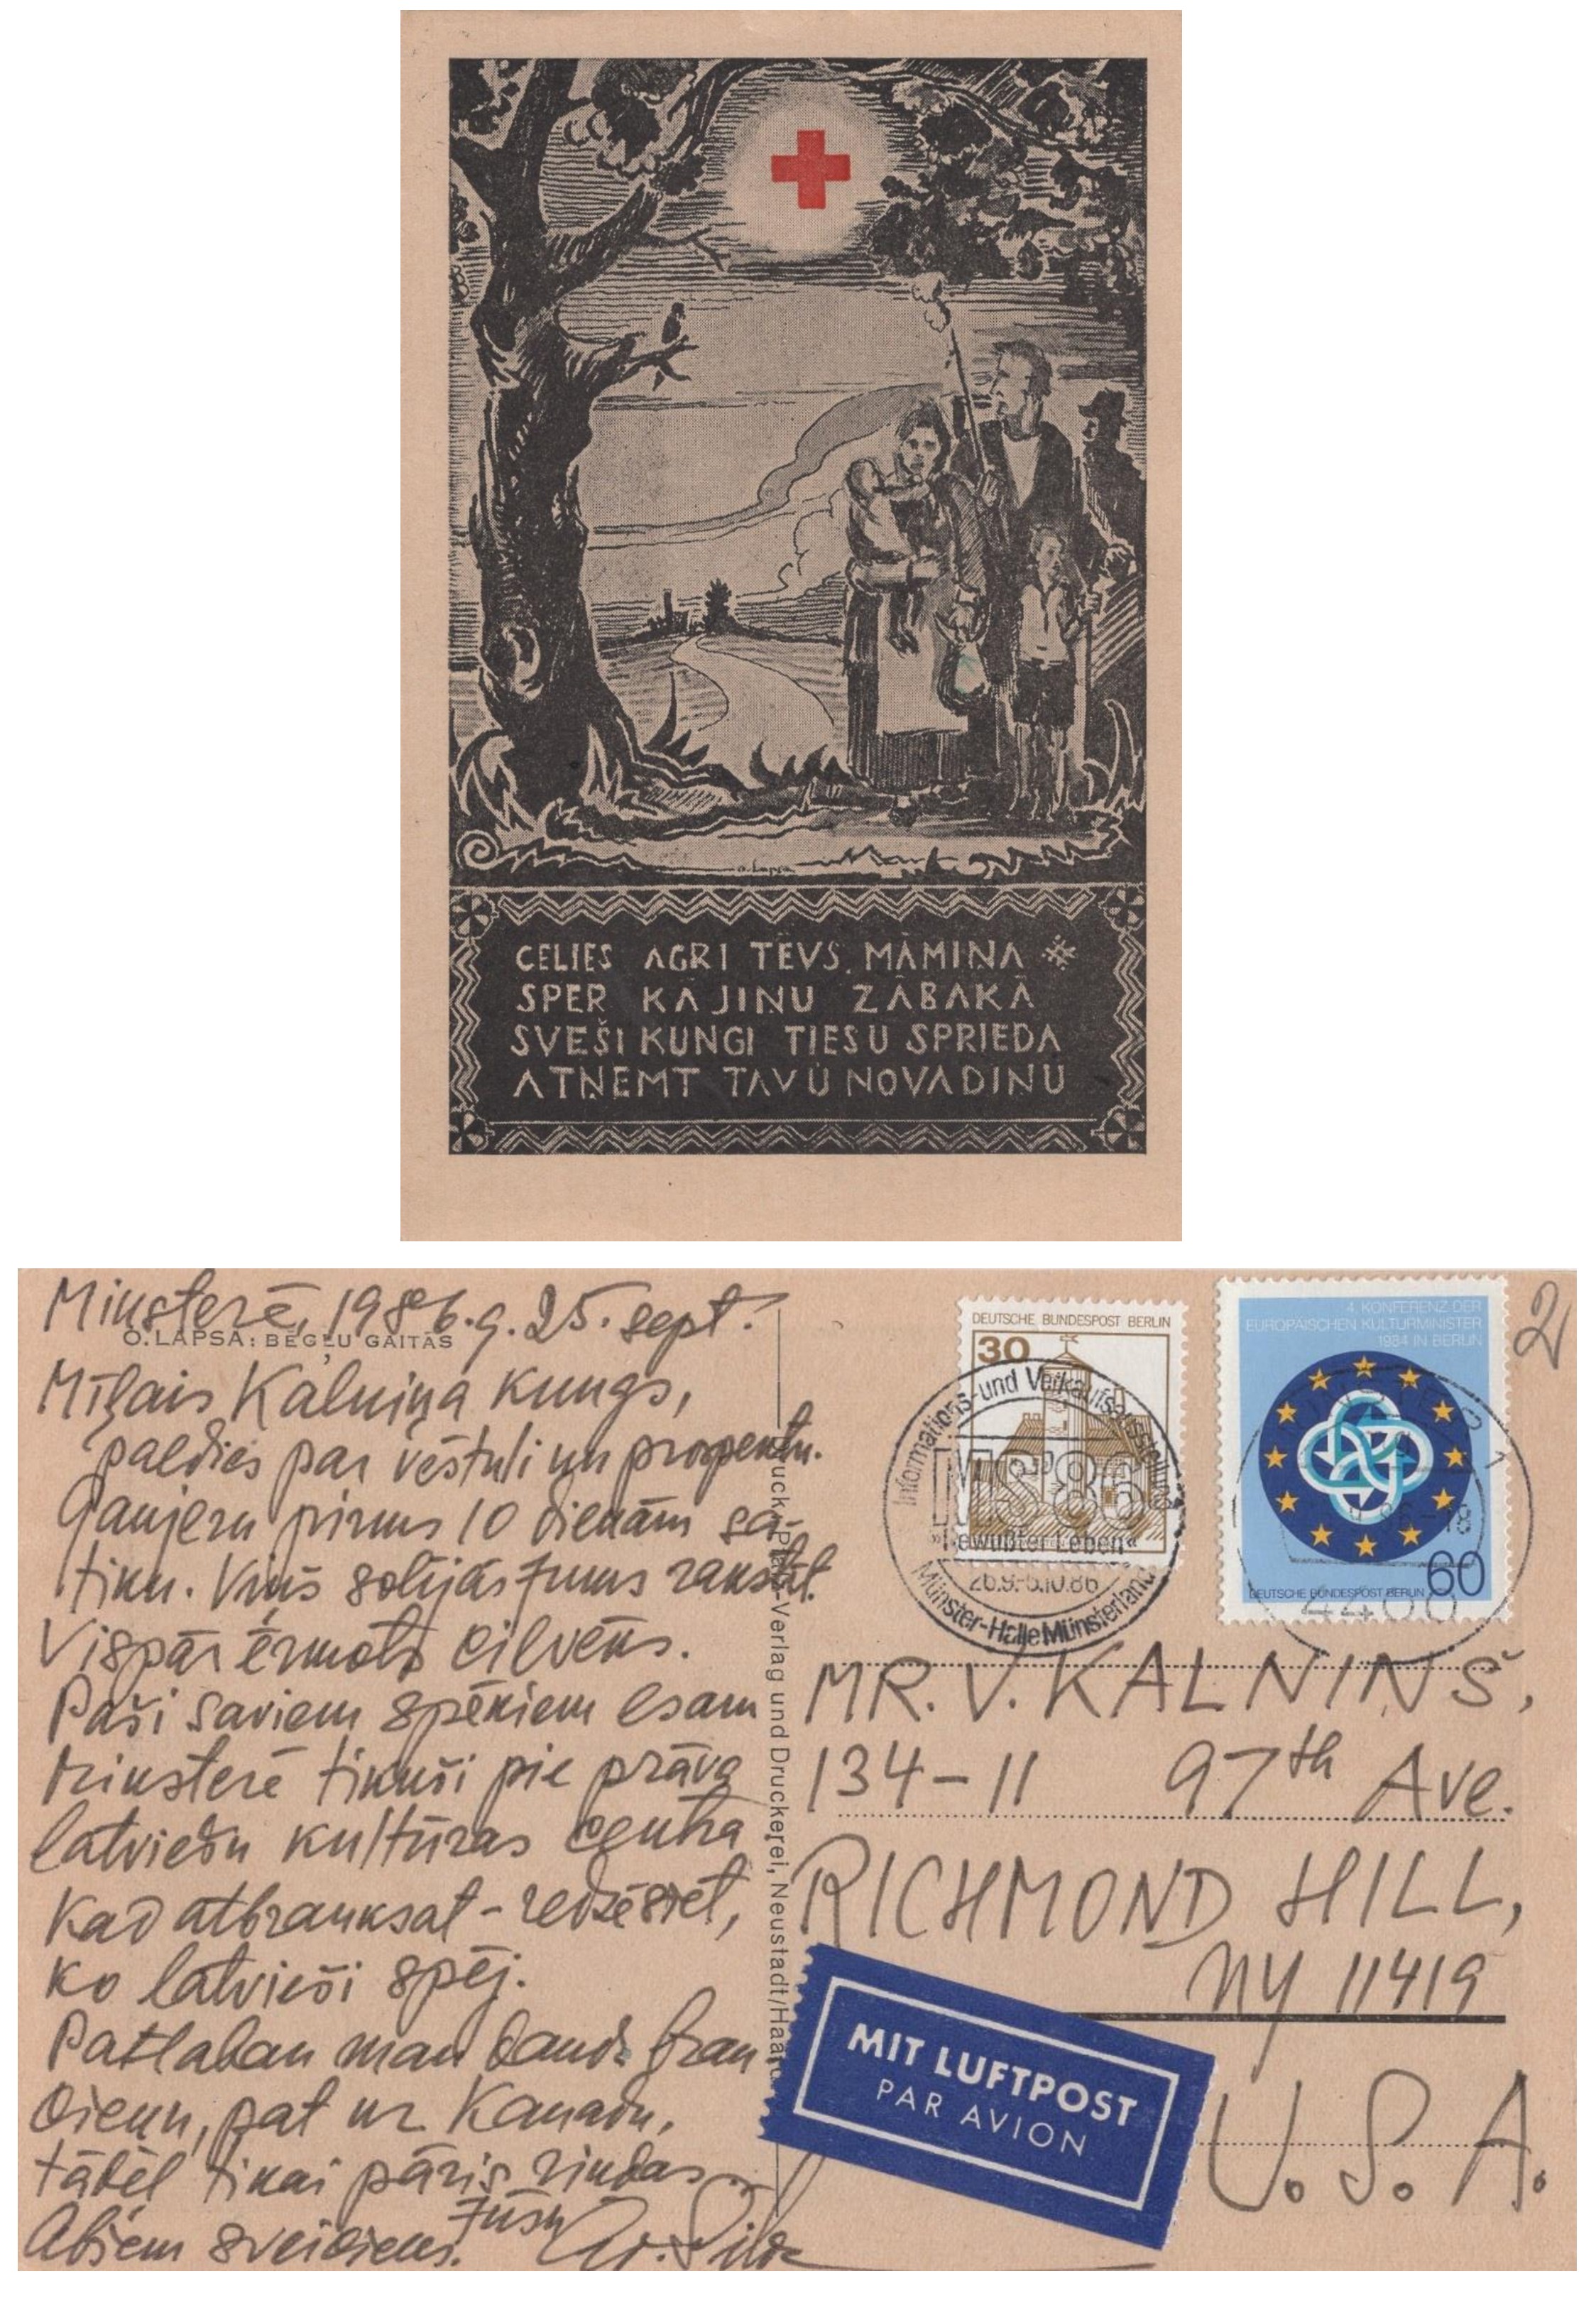 O. Lapsa
CELIES AGRI TĒVS, MĀMIŅA
SPER KĀJIŅU ZĀBAKĀ
SVEŠI KUNGI TIESU SPRIEDA
ATŅEMT TAVU NOVADIŅU
Minsterē, 1986.g. 25. sept.
O. LAPSA: BĒGĻU GAITAS
Mīļais Kalniņa kungs,
paldies par vēstuli un prospektu.
Gaujeru pirms 10 dienām sa-
tiku. Viņš solījās Jums rakstīt.
Vispār ērmots cilvēks.
Paši saviem spēkiem esam
Minsterē tikuši pie prāva
latviešu kultūras centra
Kad atbrauksat - redzēsiet,
ko latvieši spēj.
Patlaban man daudz brau
cienu, pat uz Kanadu,
tādēļ tikai pāris rindas
Abiem sveiciens. Jūsu
Verlag und Druckerei, Neustadt/Haardt
DEUTSCHE BUNDESPOST BERLIN
30
Informations- und Verkaufsausstellung
MS 86
»Bewußter Leben«
26.9.-5.10.86
Münster-Halle Münsterland
4. KONFERENZ DER
EUROPÄISCHEN KULTURMINISTER
1984 IN BERLIN
DEUTSCHE BUNDESPOST BERLIN 60
4400
2
MR. V. KALNINŠ,
134-11 97th Ave.
RICHMOND HILL,
NY 11419
U.S.A.
MIT LUFTPOST
PAR AVION